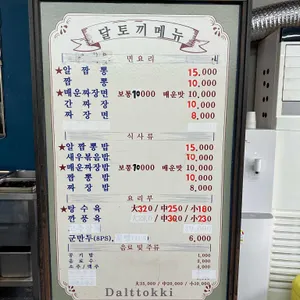 달토끼메뉴
면요리
★알 짬 뽕 15,000
짬 뽕 10,000
★매운짜장면 보통10000 매운맛 10,000
간 짜 장 10,000
짜 장 면 8,000
식사류
★알 짬 뽕 밥 15,000
새우볶음밥 10,000
★매운짜장밥 보통10000 매운맛 10,000
짬 뽕 밥 10,000
짜 장 밥 8,000
요리부
★탕 수 육 大320 / 中250 / 180
깐 풍 육 中380 / 230
군만두(8PS), 6,000
음료 및 주류
공 기 밥
음 료 수
소주 / 맥주
Dalttokki